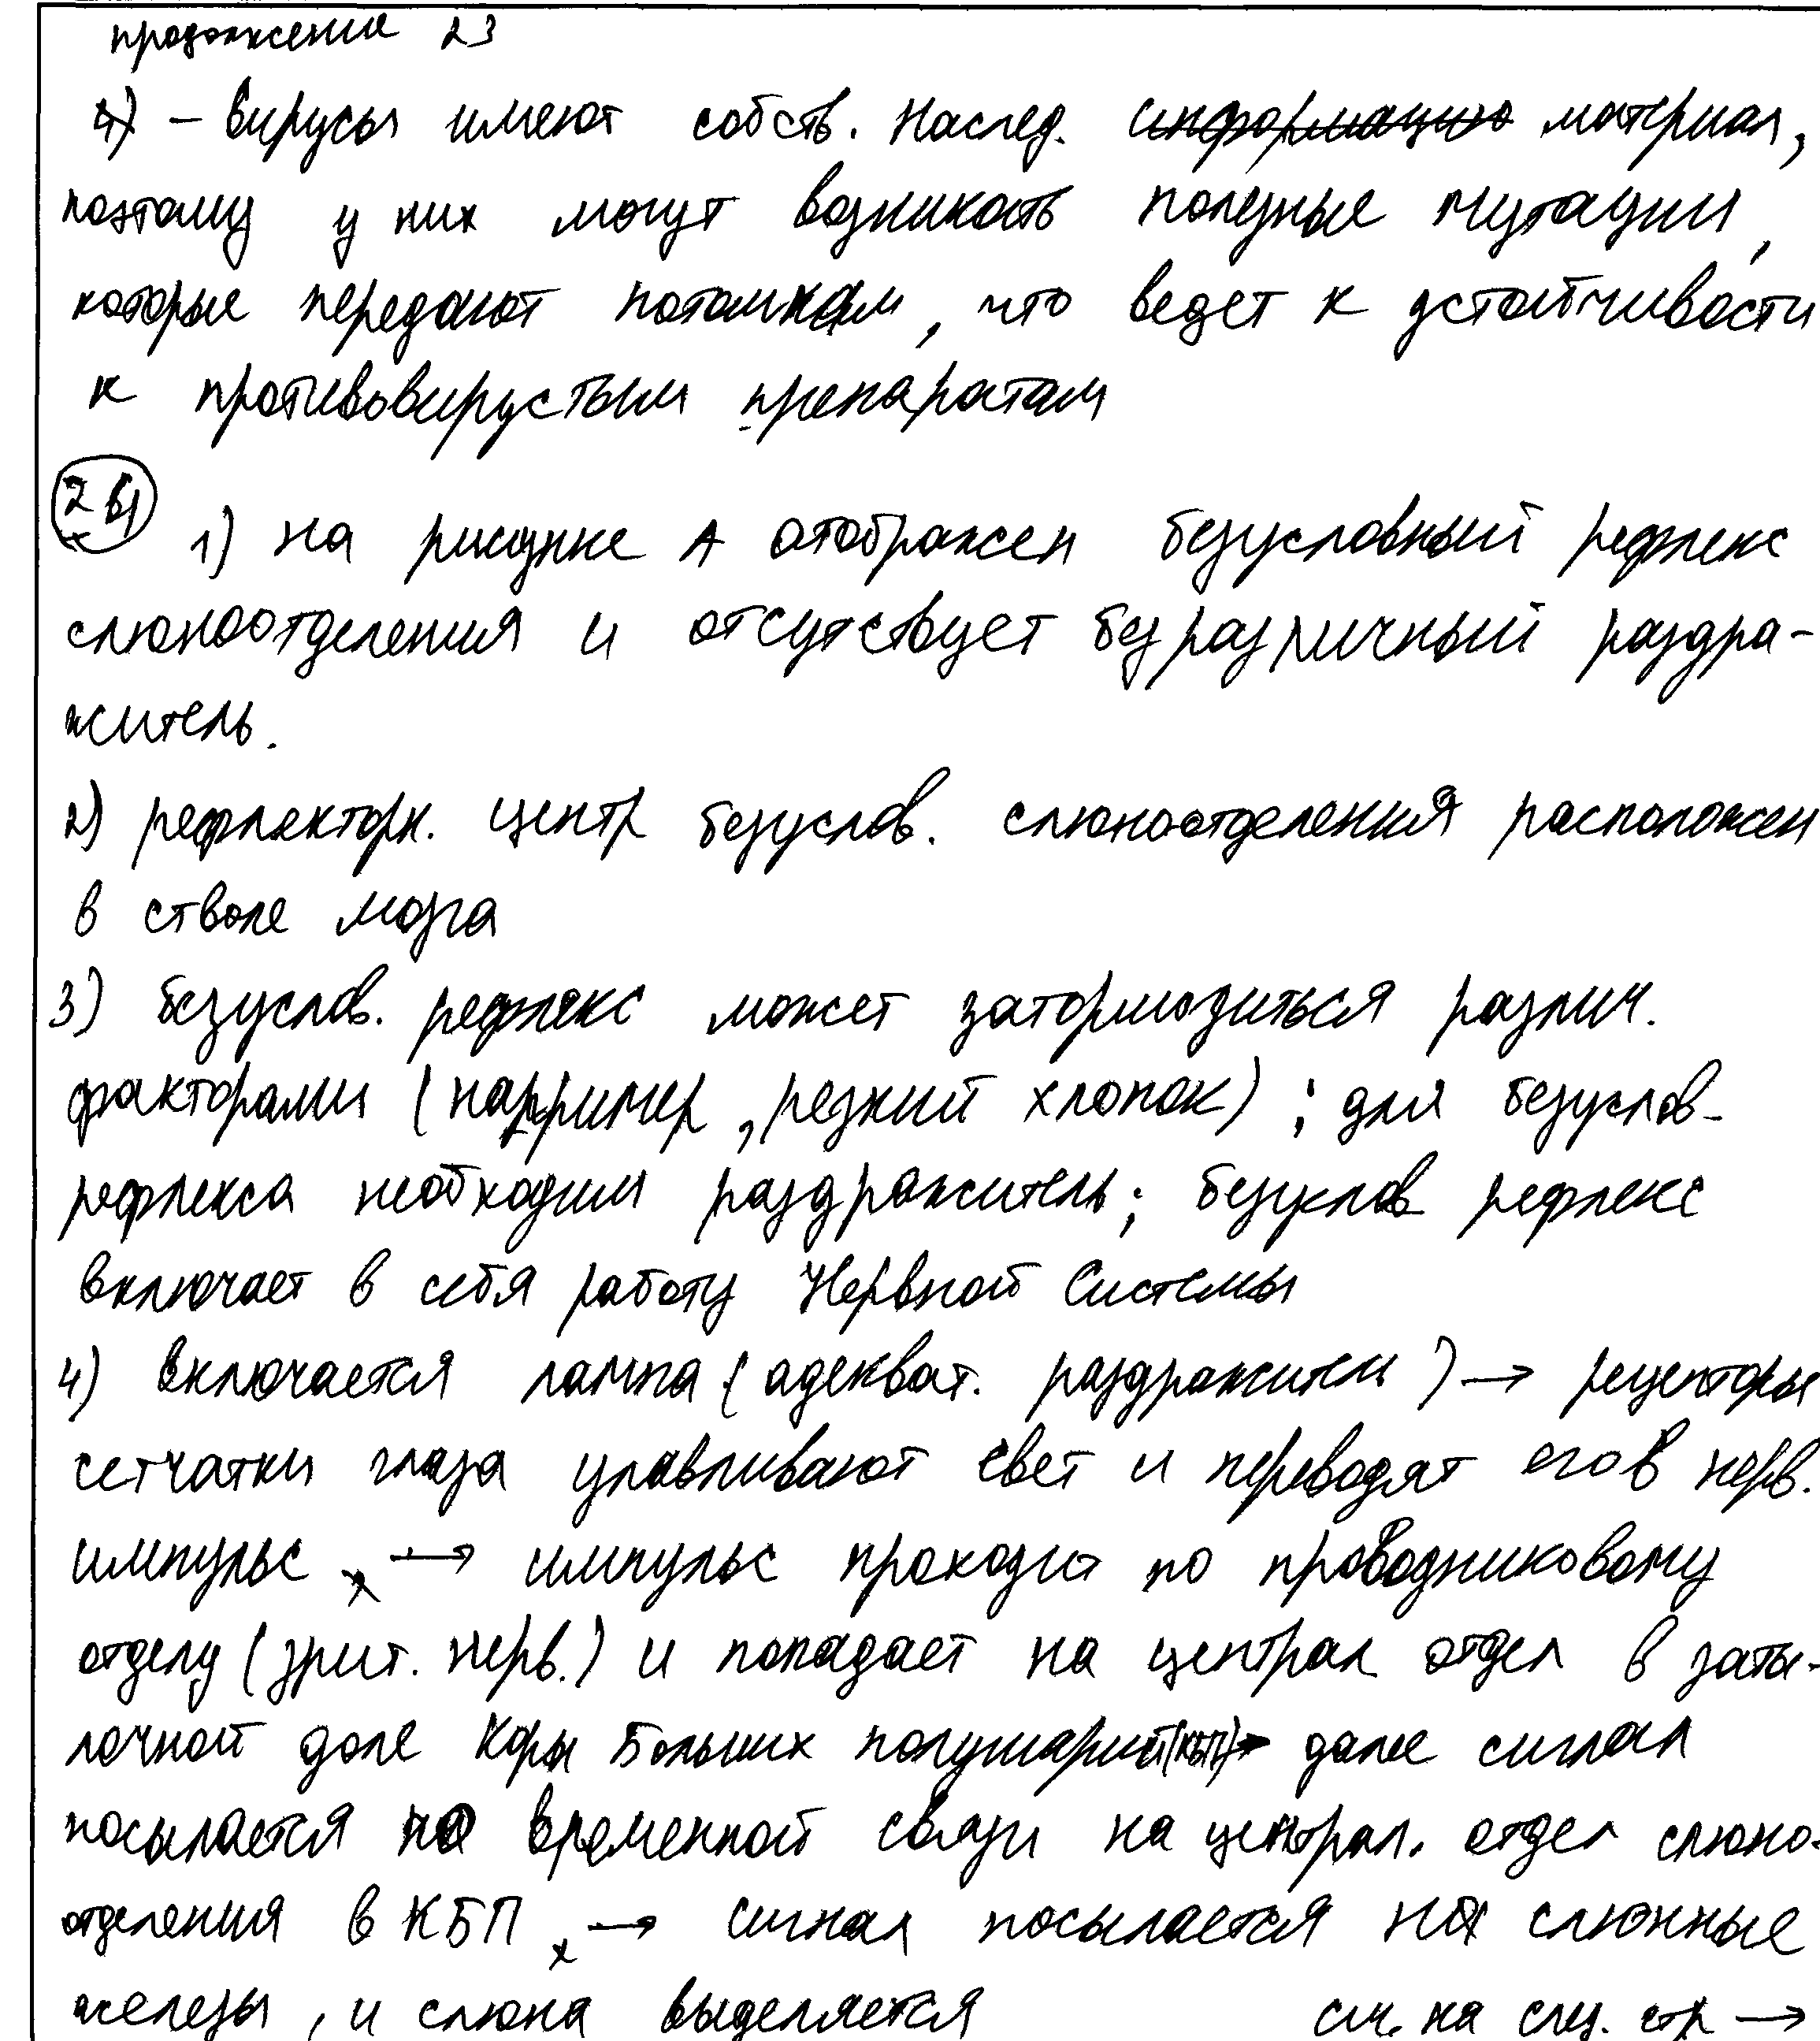 продолжение 23
4) – вирусы имеют собств. наслед. информацию материал,
поэтому у них могут возникать полезные мутации,
которые передают потомкам, что ведет к устойчивости
к противовирустым препаратам
24
1) на рисунке А отображен безусловный рефлекс
слюноотделения и отсутствует безразличный раздра-
житель.
2) рефлекторн. центр безуслов. слюноотделения расположен
в стволе мозга
3) безуслов. рефлекс может затормозиться различ.
факторами (например, резкий хлопок); для безуслов-
рефлекса необходим раздражитель; безуклов рефлекс
включает в себя работу Нервной Системы
4) включается лампа (адекват. раздражитель) → рецепторы
сетчатки глаза улавливают свет и переводят его в нерв.
импульс → импульс проходит по проводниковому
отделу (зрит. нерв.) и попадает на централ отдел в заты-
лочной доле Коры Больших полушарий (КБП) → далее сигнал
посылается по временной связи на централ. отдел слюно-
отделения в КБП → сигнал посылается на слюнные
железы, и слюна выделяется
см. на след. стр →